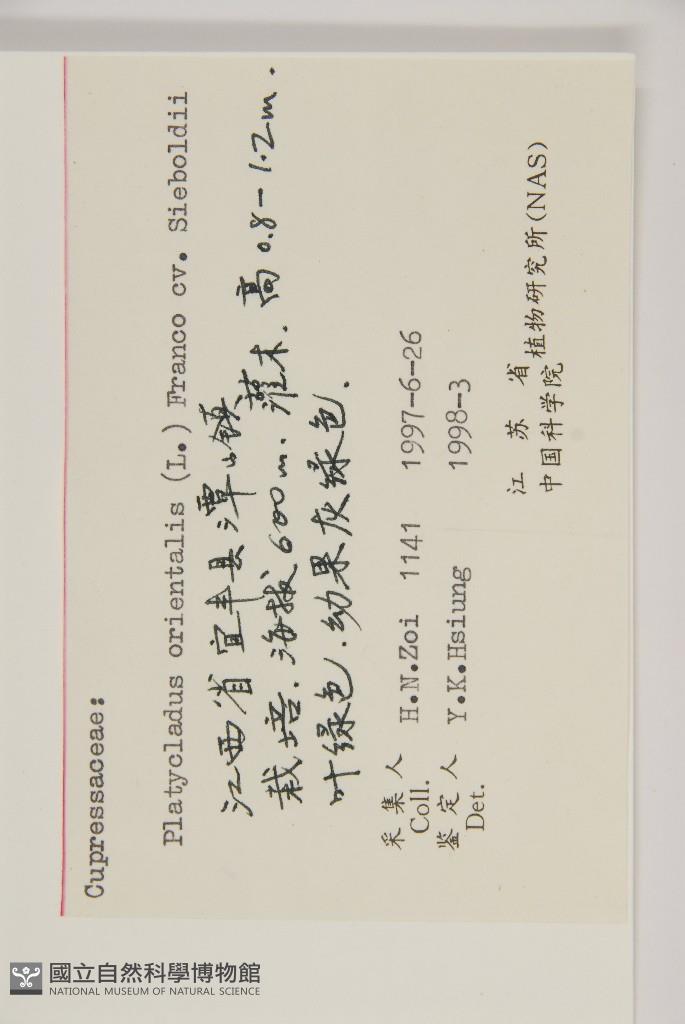 Cupressaceae:
Platycladus orientalis (L.) Franco cv. Sieboldii
江西省宜丰县潭山镇
栽培. 海拔600m. 灌木. 高0.8-1.2m.
叶绿色. 幼果灰绿色.
采集人 Coll. H.N.Zoi 1141 1997-6-26
鉴定人 Det. Y.K.Hsiung 1998-3
江苏省
中国科学院 植物研究所(NAS)
國立自然科學博物館
NATIONAL MUSEUM OF NATURAL SCIENCE